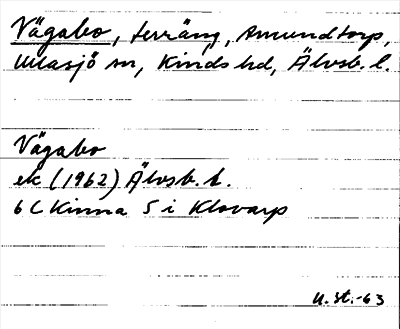 Vägabo, terräng, Amundtorp,
Ullasjö sn, Kinds hd, Älvsb. l.
Vägabo
ek (1962) Älvsb. l.
6 C Kinna 5 i Klovarp
U.St.-63